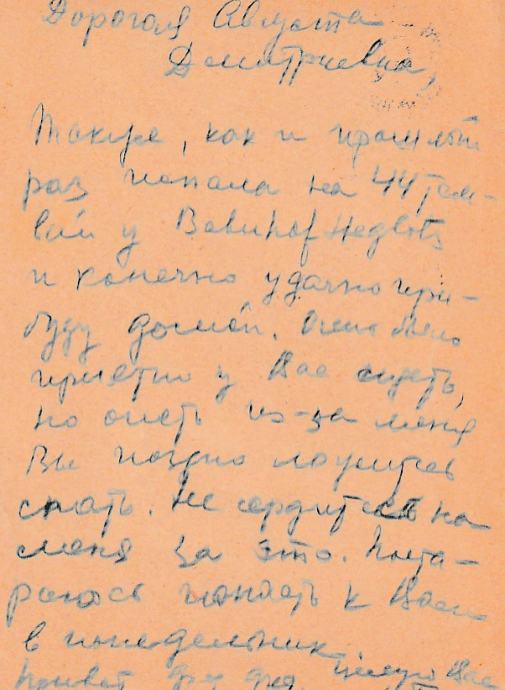 Дорогая Августа
Дмитриевна,
Также, как и прошлый
раз попала на 44 трам-
вай у Bahnhof
и конечно удачно при-
буду домой. Очень было
приятно у Вас сидеть,
но опять из-за меня
Вы поздно ложитесь
спать. Не сердитесь на
меня за это. Поста-
раюсь попасть к Вам
в понедельник.
Привет Целую Вас